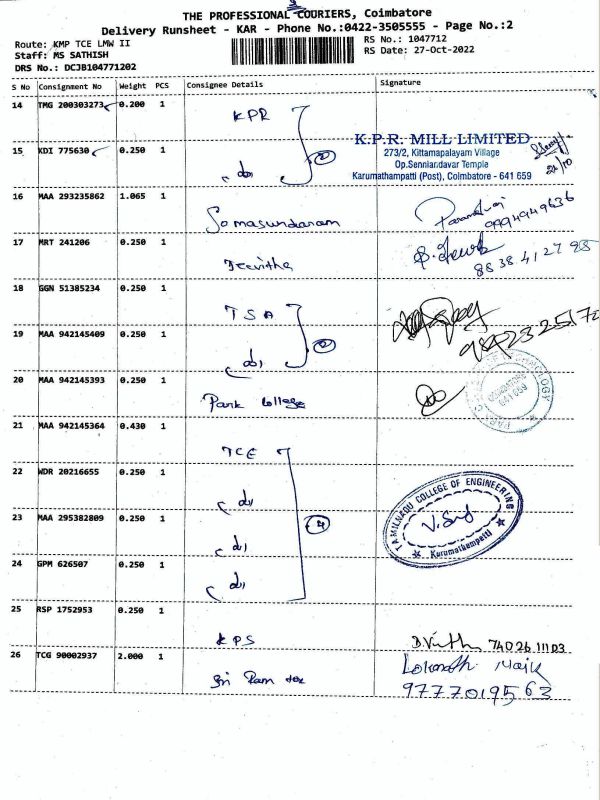 THE PROFESSIONAL COURIERS, Coimbatore
Delivery Runsheet - KAR - Phone No.:0422-3505555 - Page No.:2
Route: KMP TCE LMW II
RS No.: 1047712
Staff: MS SATHISH
RS Date: 27-Oct-2022
DRS No.: DCJB104771202
S No Consignment No Weight PCS Consignee Details Signature
14 TMG 200303273 0.200 1 KPR
K.P.R. MILL LIMITED
273/2, Kittampalayam Village
Op.Senniandavar Temple
Karumathampatti (Post), Coimbatore - 641 659
15 KDI 775630 0.250 1 2
16 MAA 293235862 1.065 1 Somasundaram
9994949636
17 MRT 241206 0.250 1 Jeevitha
8838412798
18 GGN 51385234 0.250 1 TSA
19 MAA 942145409 0.250 1 2
20 MAA 942145393 0.250 1 Park College
COIMBATORE
641 659
21 MAA 942145364 0.430 1 TCE
22 WDR 20216655 0.250 1
TAMILNADU COLLEGE OF ENGINEERING
Karumathampatti
23 MAA 295382809 0.250 1 4
24 GPM 626507 0.250 1
25 RSP 1752953 0.250 1 KPS
26 TCG 90002937 2.000 1 Sri Ram tex
Lokanath Naik
9777019563